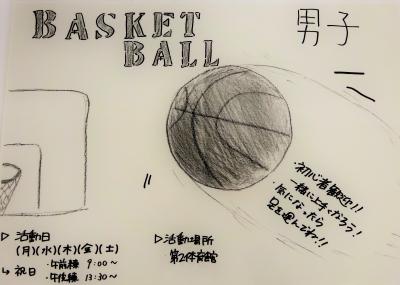 BASKET
BALL
男子
・初心者歓迎!!
一緒に上手くなろう!
・気になったら
足を運んでね!!
▷ 活動日
(月)(水)(木)(金)(土)
↳ 祝日
・午前練 9:00〜
・午後練 13:30〜
▷活動場所
第2体育館